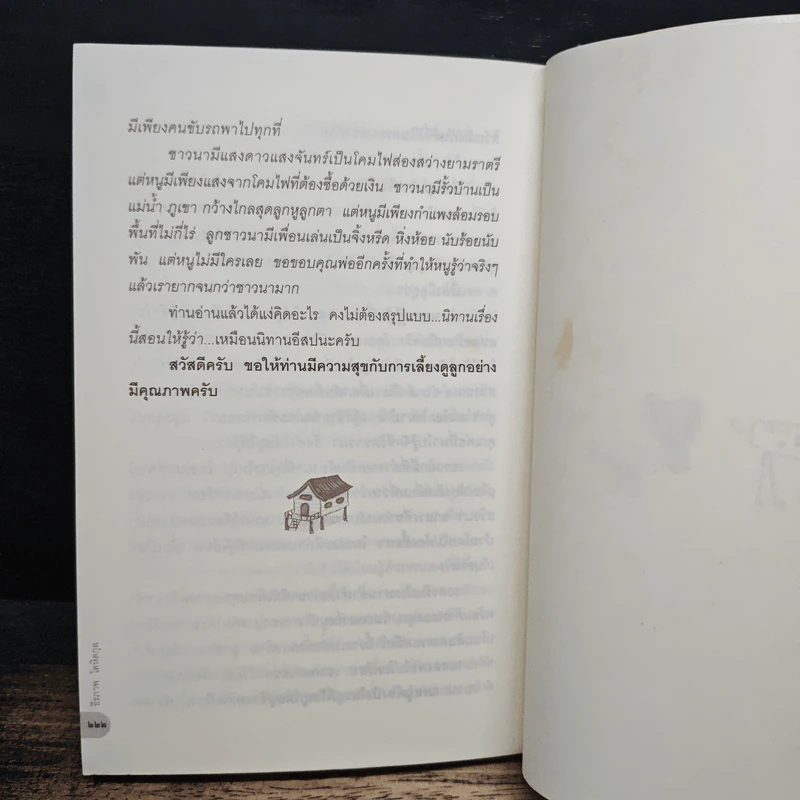 มีเพียงคนขับรถพาไปทุกที่
ชาวนามีแสงดาวแสงจันทร์เป็นโคมไฟส่องสว่างยามราตรี
แต่หนูมีเพียงแสงจากโคมไฟที่ต้องซื้อด้วยเงิน ชาวนามีรั้วบ้านเป็น
แม่น้ำ ภูเขา กว้างไกลสุดลูกหูลูกตา แต่หนูมีเพียงกำแพงล้อมรอบ
พื้นที่ไม่กี่ไร่ ลูกชาวนามีเพื่อนเล่นเป็นจิ้งหรีด หิ่งห้อย นับร้อยนับ
พัน แต่หนูไม่มีใครเลย ขอขอบคุณพ่ออีกครั้งที่ทำให้หนูรู้ว่าจริงๆ
แล้วเรายากจนกว่าชาวนามาก
ท่านอ่านแล้วได้แง่คิดอะไร คงไม่ต้องสรุปแบบ...นิทานเรื่อง
นี้สอนให้รู้ว่า...เหมือนนิทานอีสปนะครับ
สวัสดีครับ ขอให้ท่านมีความสุขกับการเลี้ยงดูลูกอย่าง
มีคุณภาพครับ
ธีรภาพ โลหิตกุล
๒๒๒